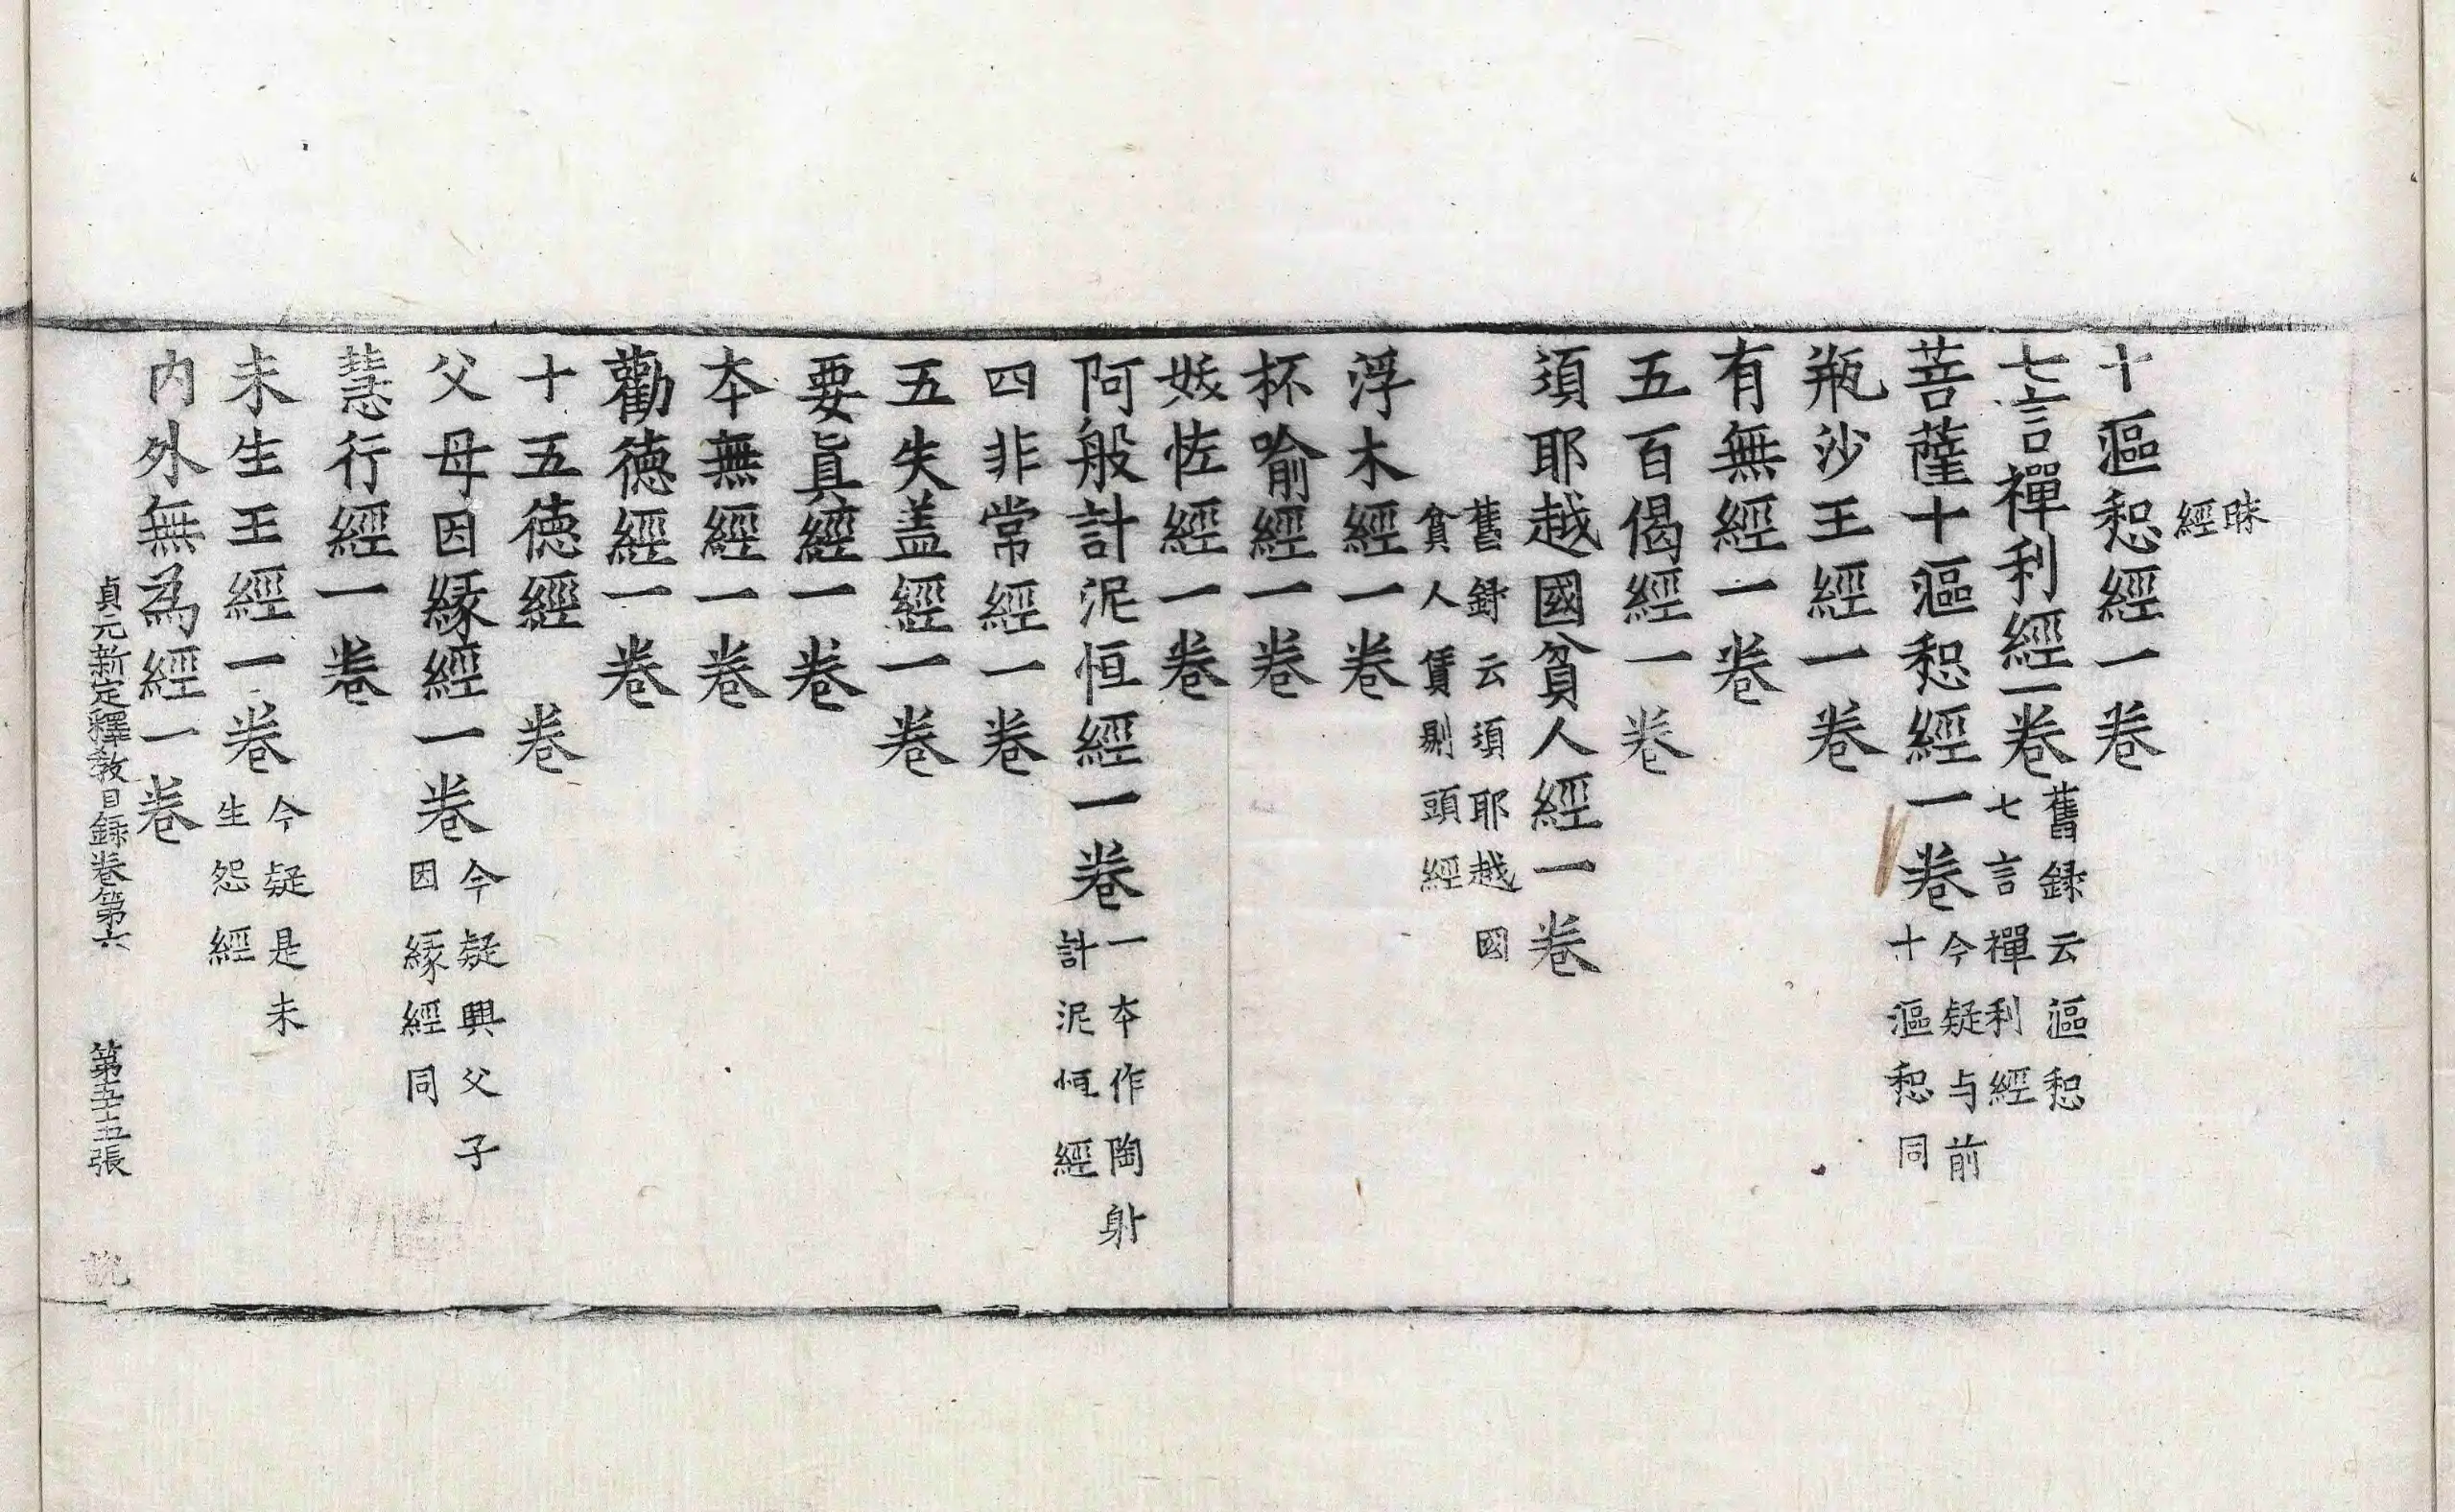 眯
經
十漚惒經一卷
七言禪利經一卷舊録云漚惒七言禪利經
菩薩十漚惒經一卷今疑与前十漚惒同
瓶沙王經一卷
有無經一卷
五百偈經一卷
須耶越國貧人經一卷
舊録云須耶越國貧人賃剔頭經
浮木經一卷
杯喻經一卷
佐經一卷
阿般計泥恒經一卷一本作陶射計泥恒經
四非常經一卷
五失盖經一卷
要眞經一卷
本無經一卷
勸德經一卷
十五德經 卷
父母因縁經一卷今疑與父子因縁經同
慧行經一卷
未生王經一卷今疑是未生怨經
内外無為經一卷
貞元新定釋教目録卷第六 第五十五張